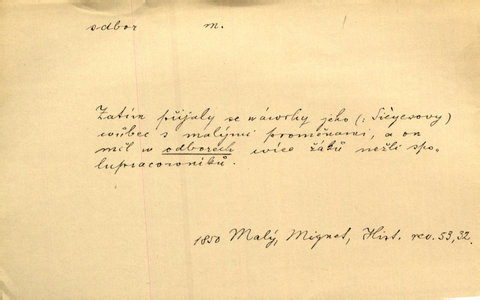 odbor m.
Zatím přijaly se náwrhy jeho (: Sièyesovy)
wůbec s malými proměnami, a on
měl w odborech wíce žáků nežli spo-
lupracowníků.
1850 Malý, Mignet, Hist. rev. 53, 32.